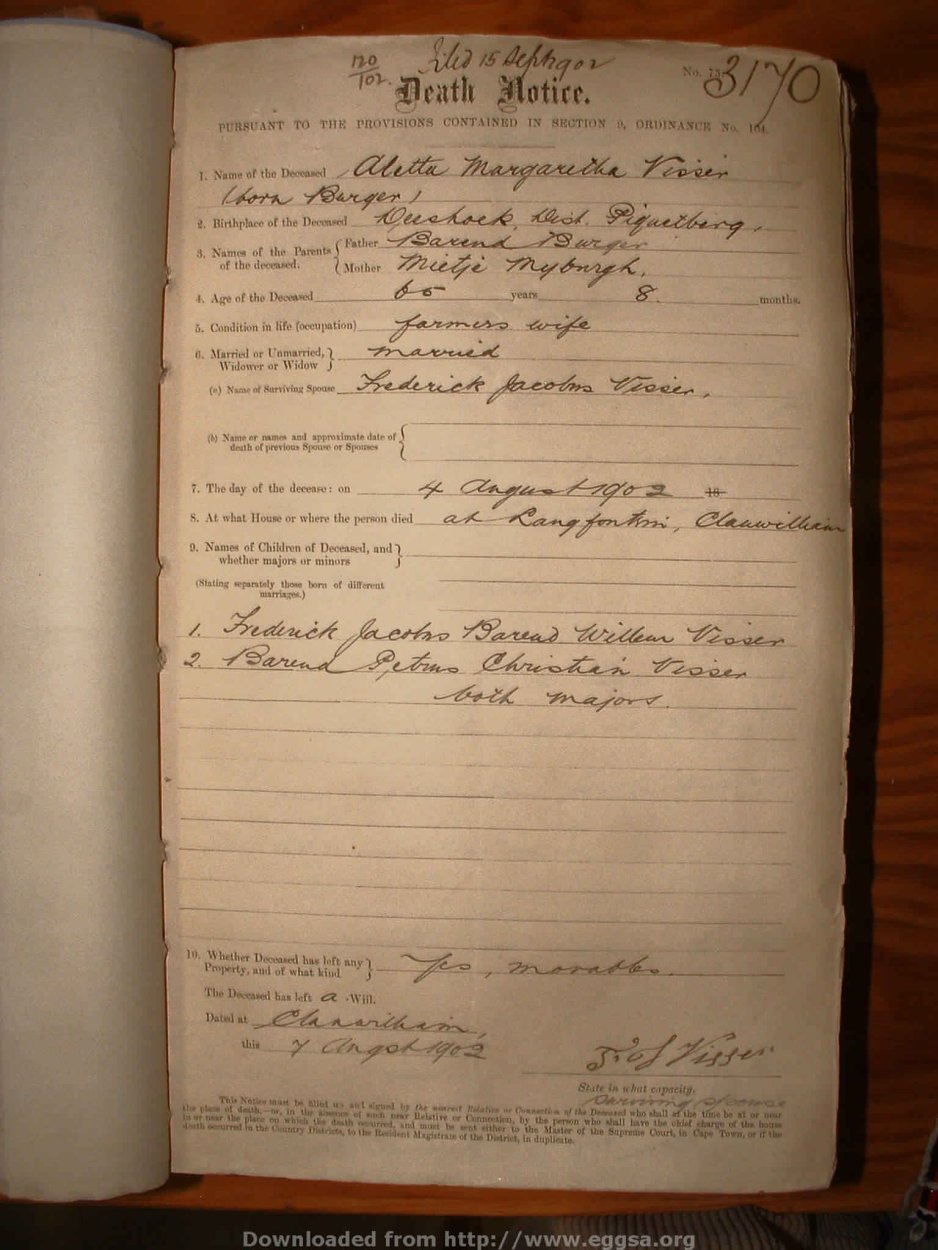 120
102. Filed 15 Septr 902
No. 73 3170
Death Notice.
PURSUANT TO THE PROVISIONS CONTAINED IN SECTION 9, ORDINANCE No. 104.
1. Name of the Deceased Aletta Margaretha Visser
(born Burger)
2. Birthplace of the Deceased Dist. Piquetberg,
3. Names of the Parents of the deceased. Father Barend Burger
Mother Mietje Myburgh.
4. Age of the Deceased 65 years 8. months.
5. Condition in life (occupation) farmers wife
6. Married or Unmarried, Widower or Widow married
(a) Name of Surviving Spouse Frederick Jacobus Visser,
(b) Name or names and approximate date of
death of previous Spouse or Spouses
7. The day of the decease: on 4 August 1902 18
8. At what House or where the person died at Langfontein, Clanwilliam
9. Names of Children of Deceased, and
whether majors or minors
(Stating separately those born of different
marriages.)
1. Frederick Jacobus Barend Willem Visser
2. Barend Petrus Christian Visser
both majors.
10. Whether Deceased has left any
Property, and of what kind Yes, movables.
The Deceased has left a Will.
Dated at Clanwilliam,
this 7 Augst 1902
F. J. Visser
State in what capacity.
Surviving spouse
This Notice must be filled up and signed by the nearest Relative or Connection of the Deceased who shall at the time be at or near
the place of death,—or, in the absence of such near Relative or Connection, by the person who shall have the chief charge of the house
in or near the place on which the death occurred, and must be sent either to the Master of the Supreme Court, in Cape Town, or if the
death occurred in the Country Districts, to the Resident Magistrate of the District, in duplicate.
Downloaded from http://www.eggsa.org